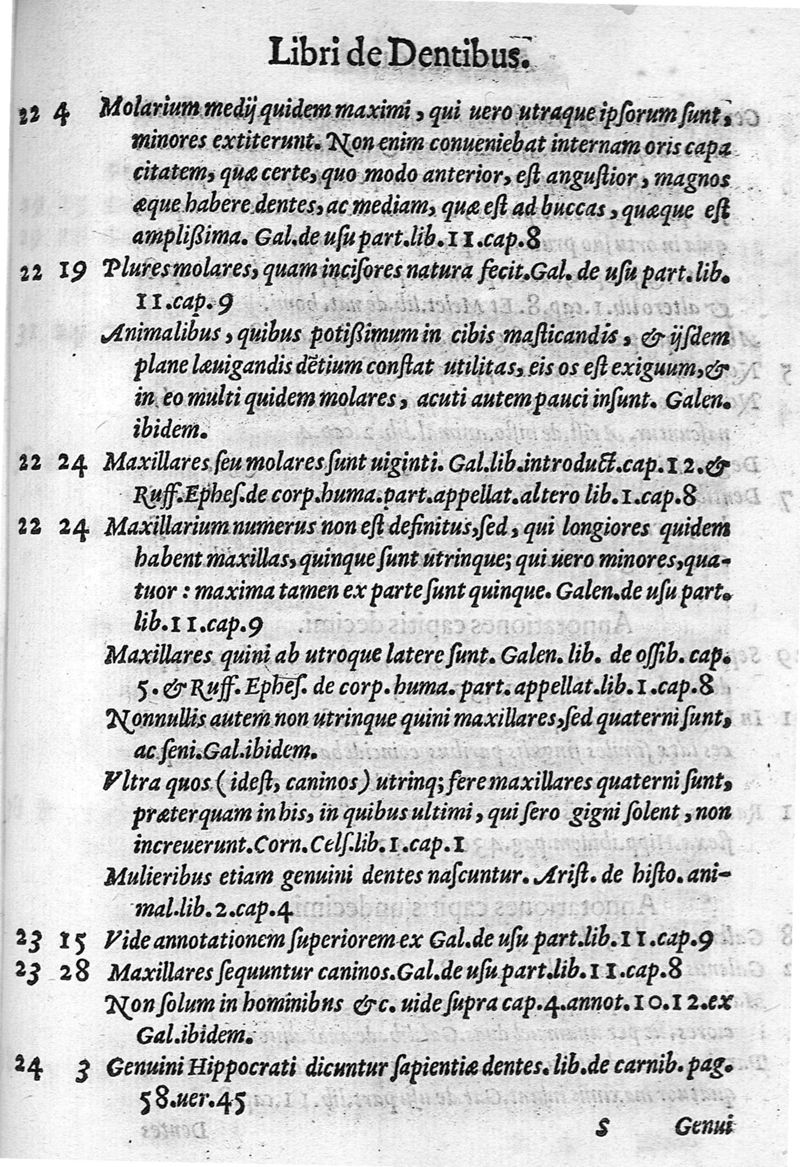 Libri de Dentibus.
22 4 Molarium medij quidem maximi, qui uero utraque ipſorum ſunt,
minores extiterunt. Non enim conueniebat internam oris capa
citatem, quæ certe, quo modo anterior, eſt anguſtior, magnos
æque habere dentes, ac mediam, quæ eſt ad buccas, quæque eſt
ampliſſima. Gal.de uſu part.lib.11.cap.8
22 19 Plures molares, quam inciſores natura fecit.Gal. de uſu part.lib.
11.cap.9
Animalibus, quibus potiſſimum in cibis maſticandis, & ijſdem
plane læuigandis dẽtium conſtat utilitas, eis os eſt exiguum,&
in eo multi quidem molares, acuti autem pauci inſunt. Galen.
ibidem.
22 24 Maxillares ſeu molares ſunt uiginti. Gal.lib.introduct.cap.12.&
Ruff.Epheſ.de corp.huma.part.appellat.altero lib.1.cap.8
22 24 Maxillarium numerus non eſt definitus,ſed, qui longiores quidem
habent maxillas, quinque ſunt utrinque; qui uero minores,qua-
tuor : maxima tamen ex parte ſunt quinque. Galen.de uſu part.
lib.11.cap.9
Maxillares quini ab utroque latere ſunt. Galen. lib. de oſſib. cap.
5. & Ruff. Epheſ. de corp.huma. part. appellat.lib.1.cap.8
Nonnullis autem non utrinque quini maxillares,ſed quaterni ſunt,
ac ſeni.Gal.ibidem.
Vltra quos (ideſt, caninos) utrinq; fere maxillares quaterni ſunt,
præterquam in his, in quibus ultimi, qui ſero gigni ſolent, non
increuerunt.Corn.Celſ.lib.1.cap.1
Mulieribus etiam genuini dentes naſcuntur. Ariſt. de hiſto.ani-
mal.lib.2.cap.4
23 15 Vide annotationem ſuperiorem ex Gal.de uſu part.lib.11.cap.9
23 28 Maxillares ſequuntur caninos.Gal.de uſu part.lib.11.cap.8
Non ſolum in hominibns &c. uide ſupra cap.4.annot.10.12.ex
Gal.ibidem.
24 3 Genuini Hippocrati dicuntur ſapientiæ dentes. lib.de carnib. pag.
58.uer.45
S Genui